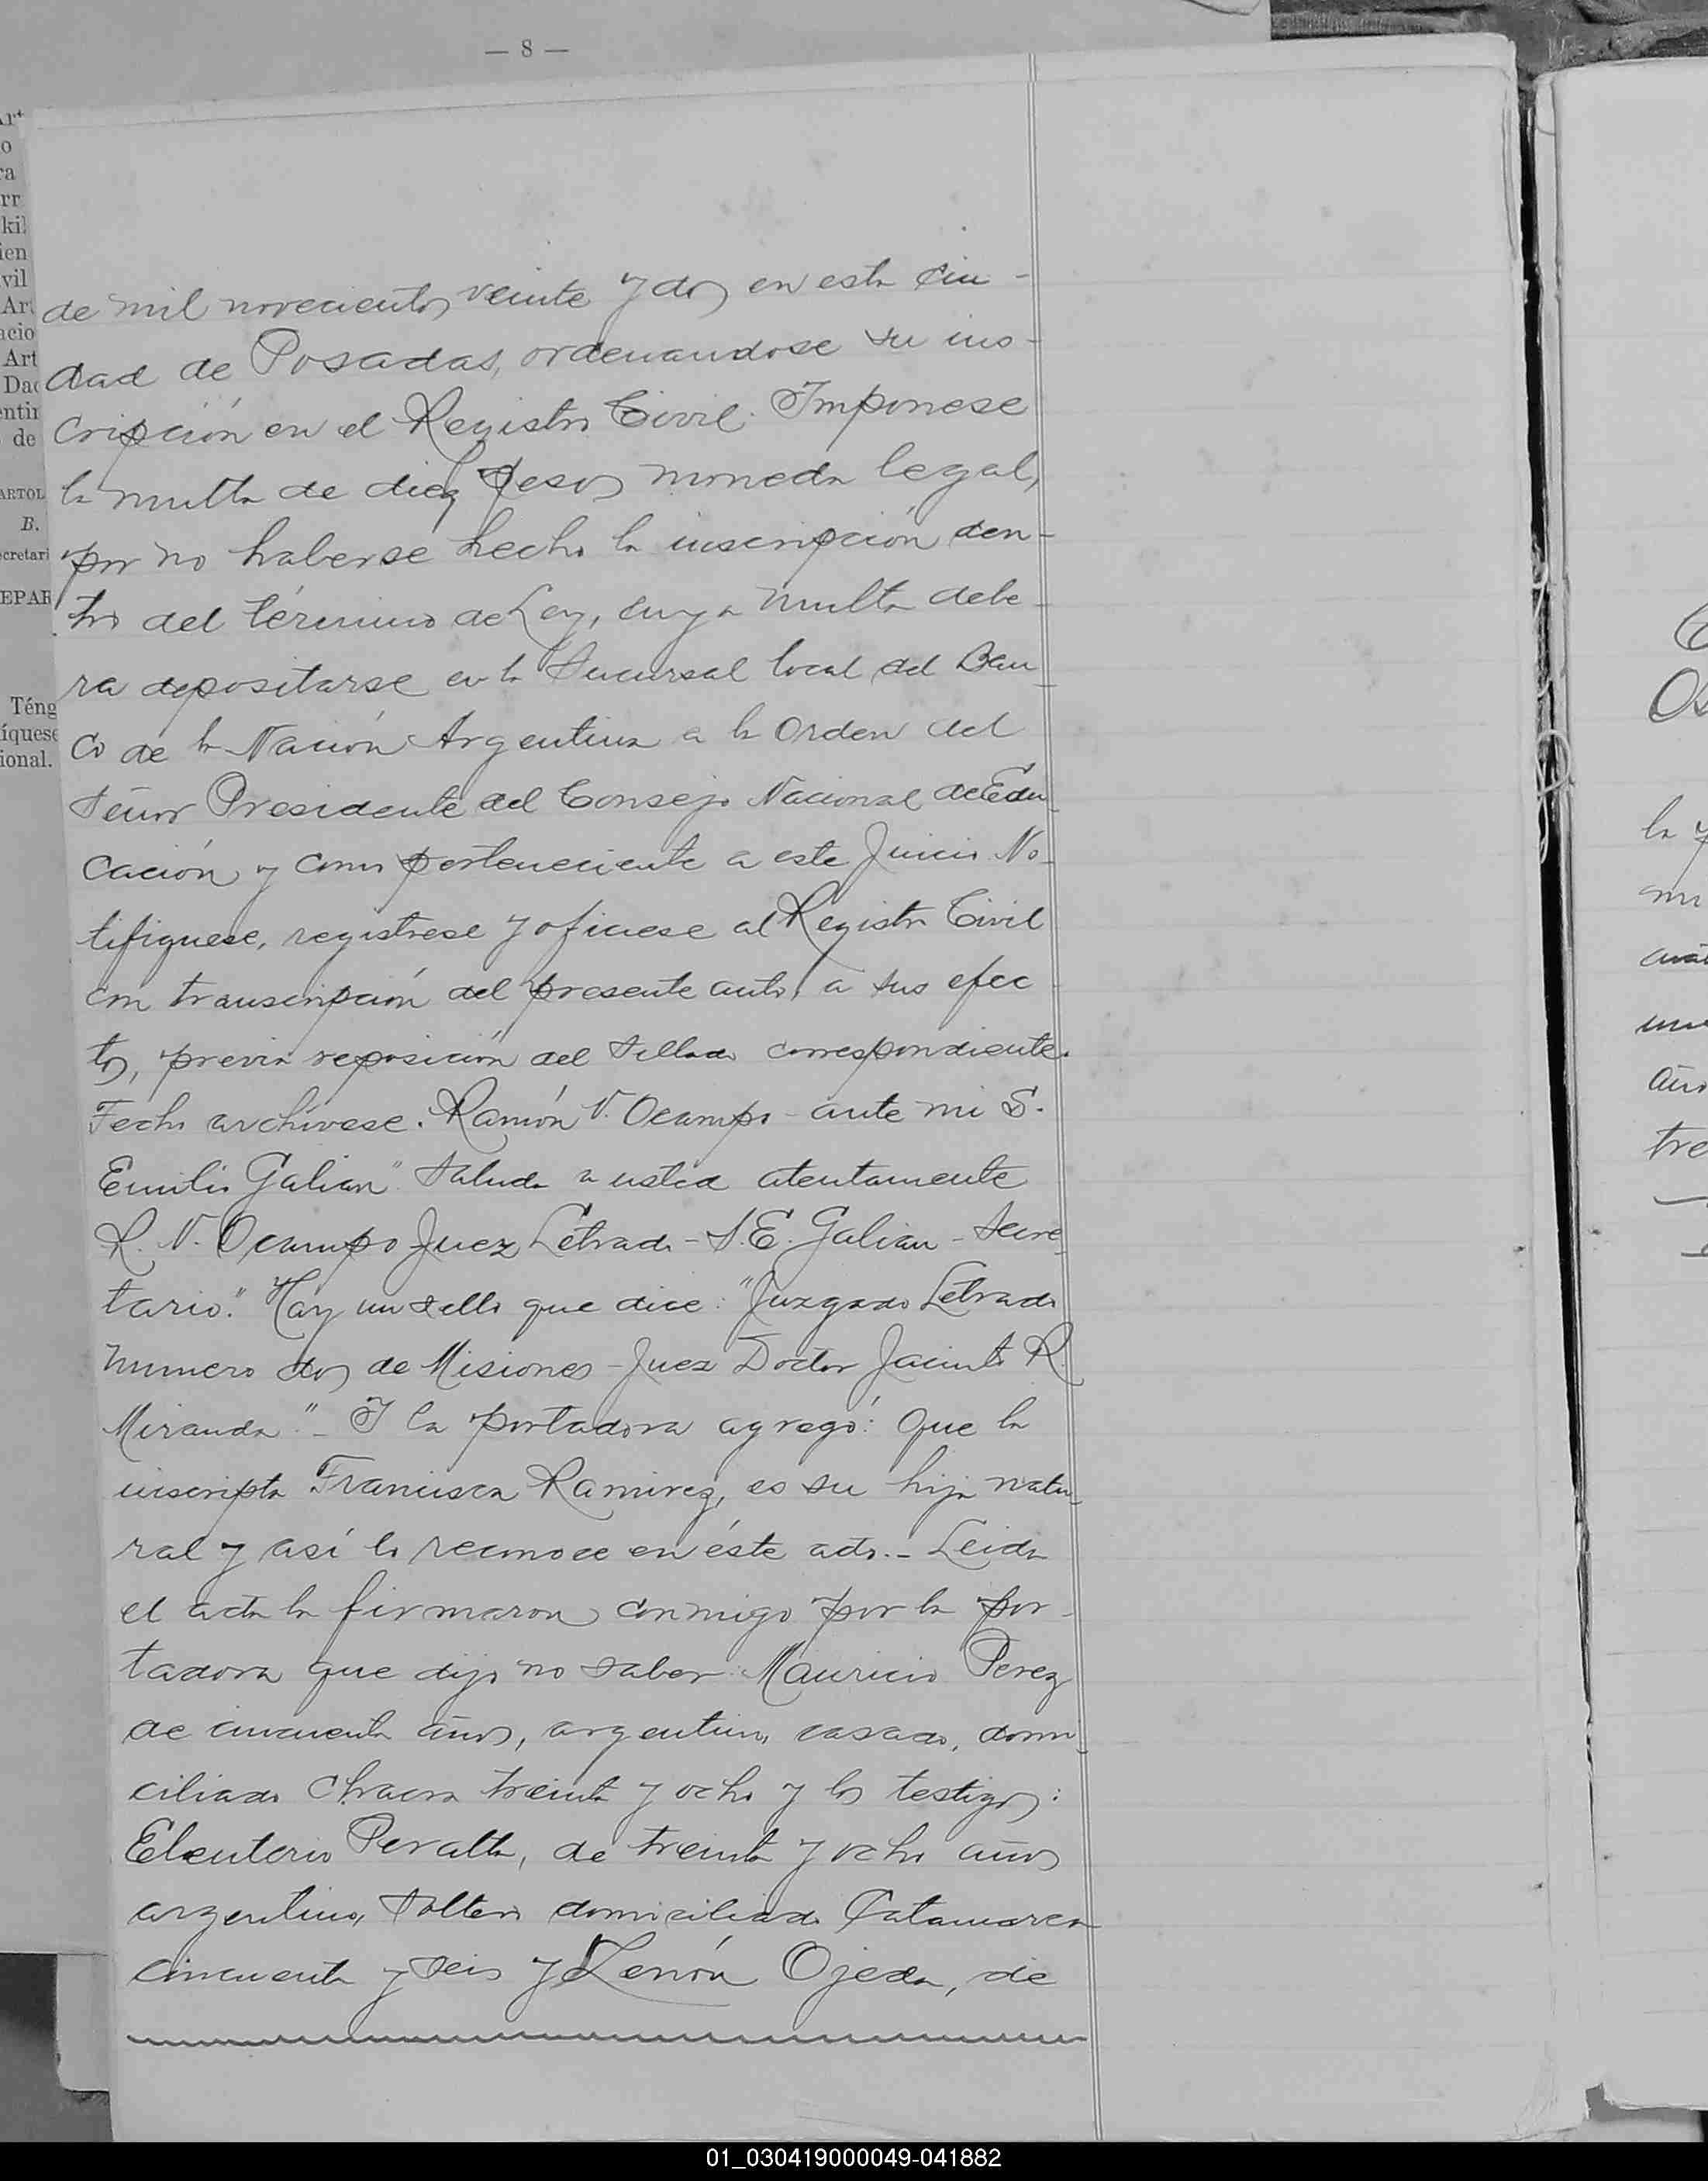 — 8 —
de mil novecientos veinte y dos en esta ciu-
dad de Posadas, ordenandose su ins-
cripción en el Registro Civil. Imponese
la multa de diez pesos moneda legal,
por no haberse hecho la inscripción den-
tro del término de Ley, cuya multa debe-
ra depositarse en la Sucursal local del Ban-
co de la Nación Argentina a la orden del
Señor Presidente del Consejo Nacional de Edu-
cación y como perteneciente a este Juicio. No-
tifiquese, registrese y oficiese al Registro Civil
con transcripción del presente auto, a sus efec-
tos, previa reposición del sellado correspondiente.
Fecho archívese. Ramón V. Ocampo - ante mi S.
Emilio Galian" Saluda a usted atentamente
R. V. Ocampo Juez Letrado - S. E. Galian - Secre-
tario." Hay un sello que dice: "Juzgado Letrado
numero dos de Misiones - Juez Doctor Jacinto R.
Miranda". - I la portadora agregó: Que la
inscripta Francisca Ramirez, es su hija natu-
ral y así lo reconoce en éste acto. - Leida
el acta la firmaron conmigo por la por-
tadora que dijo no saber: Mauricio Perez
de cincuenta años, argentino, casado, domi-
ciliado Chacra treinta y ocho y los testigos:
Eleuterio Peralta, de treinta y ocho años
argentino, soltero domiciliado Catamarca
cincuenta y seis y Zenón Ojeda, de
Téng
íquese
ional.
01_030419000049-041882